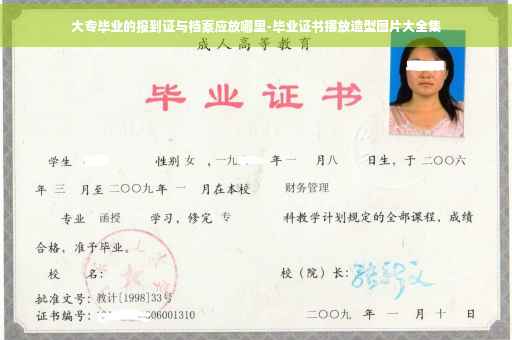 大专毕业的报到证与档案应放哪里-毕业证书摆放造型图片大全集
成人高等教育
毕业证书
学生 性别 女 ，一九 年 一 月八 日生，于 二〇〇六
年 三 月至 二〇〇九 年 一 月在本校 财务管理
专业 函授 学习，修完 专 科教学计划规定的全部课程，成绩
合格，准予毕业。
校 名： 校（院）长：
批准文号：教计[1998]33号
证书编号： 06001310 二〇〇九 年 一 月 十 日